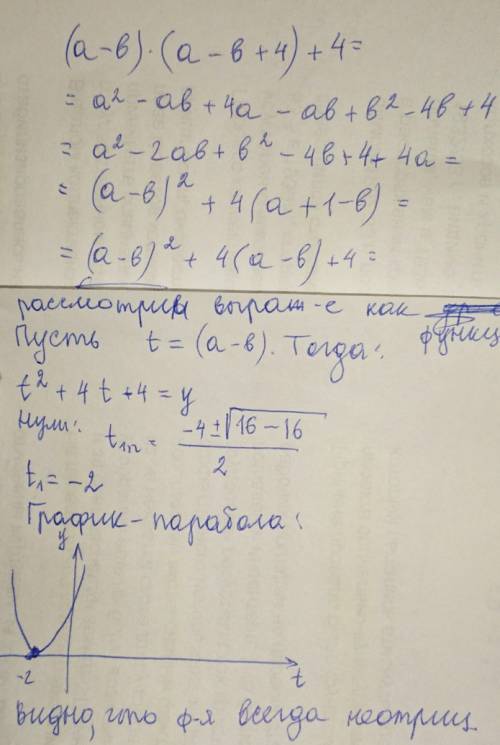 (a-в)·(a-в+4)+4=
= a² - ав + 4а - ав + в² - 4в + 4
= a² - 2ав + в² - 4в + 4 + 4а =
= (a-в)² + 4(a+1-в) =
= (a-в)² + 4(a-в) + 4 =
рассмотрим выраж-е как функц
Пусть t = (a-в). Тогда:
t² + 4t + 4 = y
Нули: t₁,₂ = (-4±√16-16)/2
t₁ = -2
График - парабола:
y
-2
t
видно, что ф-я всегда неотриц